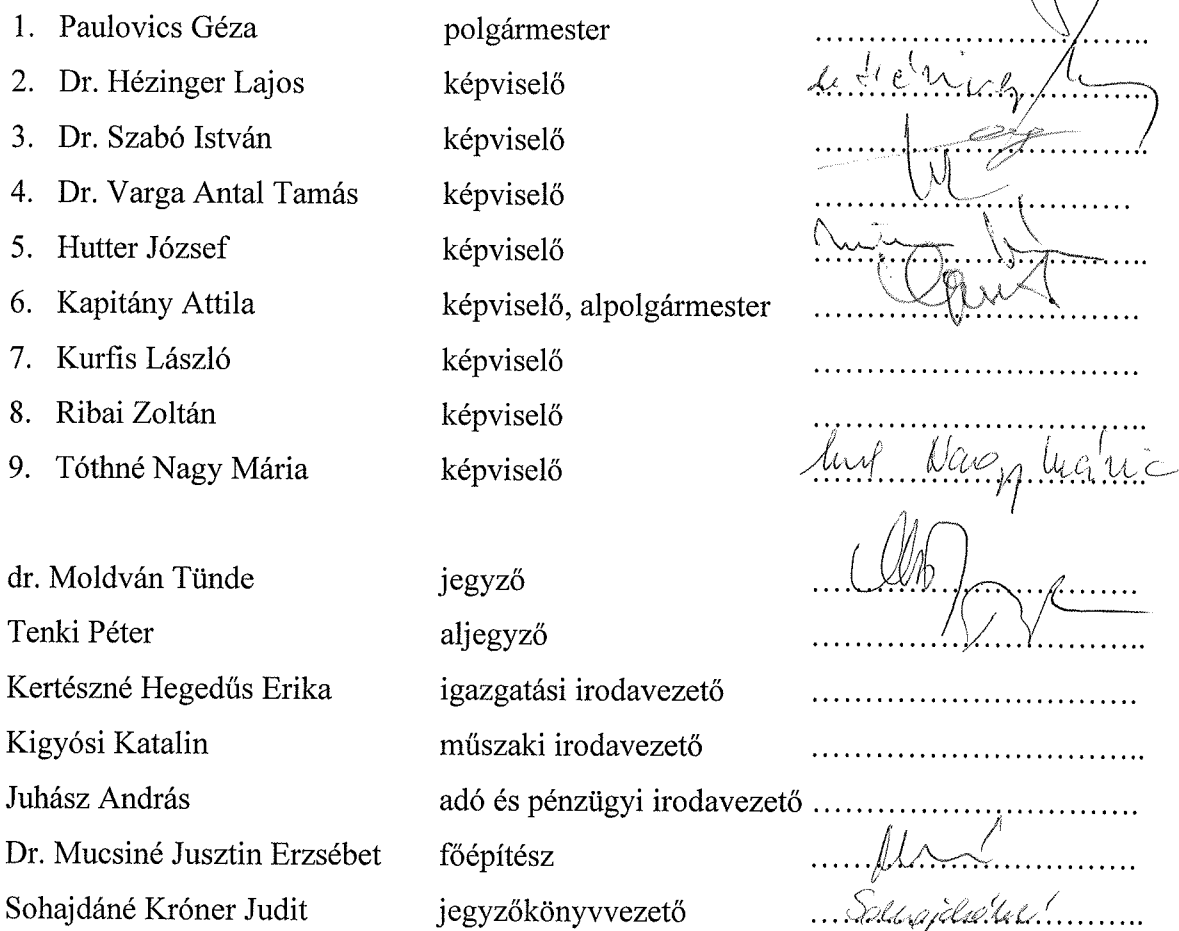 1. Paulovics Géza polgármester ..............................
2. Dr. Hézinger Lajos képviselő ..............................
3. Dr. Szabó István képviselő ..............................
4. Dr. Varga Antal Tamás képviselő ..............................
5. Hutter József képviselő ..............................
6. Kapitány Attila képviselő, alpolgármester ..............................
7. Kurfis László képviselő ..............................
8. Ribai Zoltán képviselő ..............................
9. Tóthné Nagy Mária képviselő Nagy Mária
dr. Moldván Tünde jegyző ..............................
Tenki Péter aljegyző ..............................
Kertészné Hegedűs Erika igazgatási irodavezető ..............................
Kigyósi Katalin műszaki irodavezető ..............................
Juhász András adó és pénzügyi irodavezető ..............................
Dr. Mucsiné Jusztin Erzsébet főépítész ..............................
Sohajdáné Króner Judit jegyzőkönyvvezető ..............................